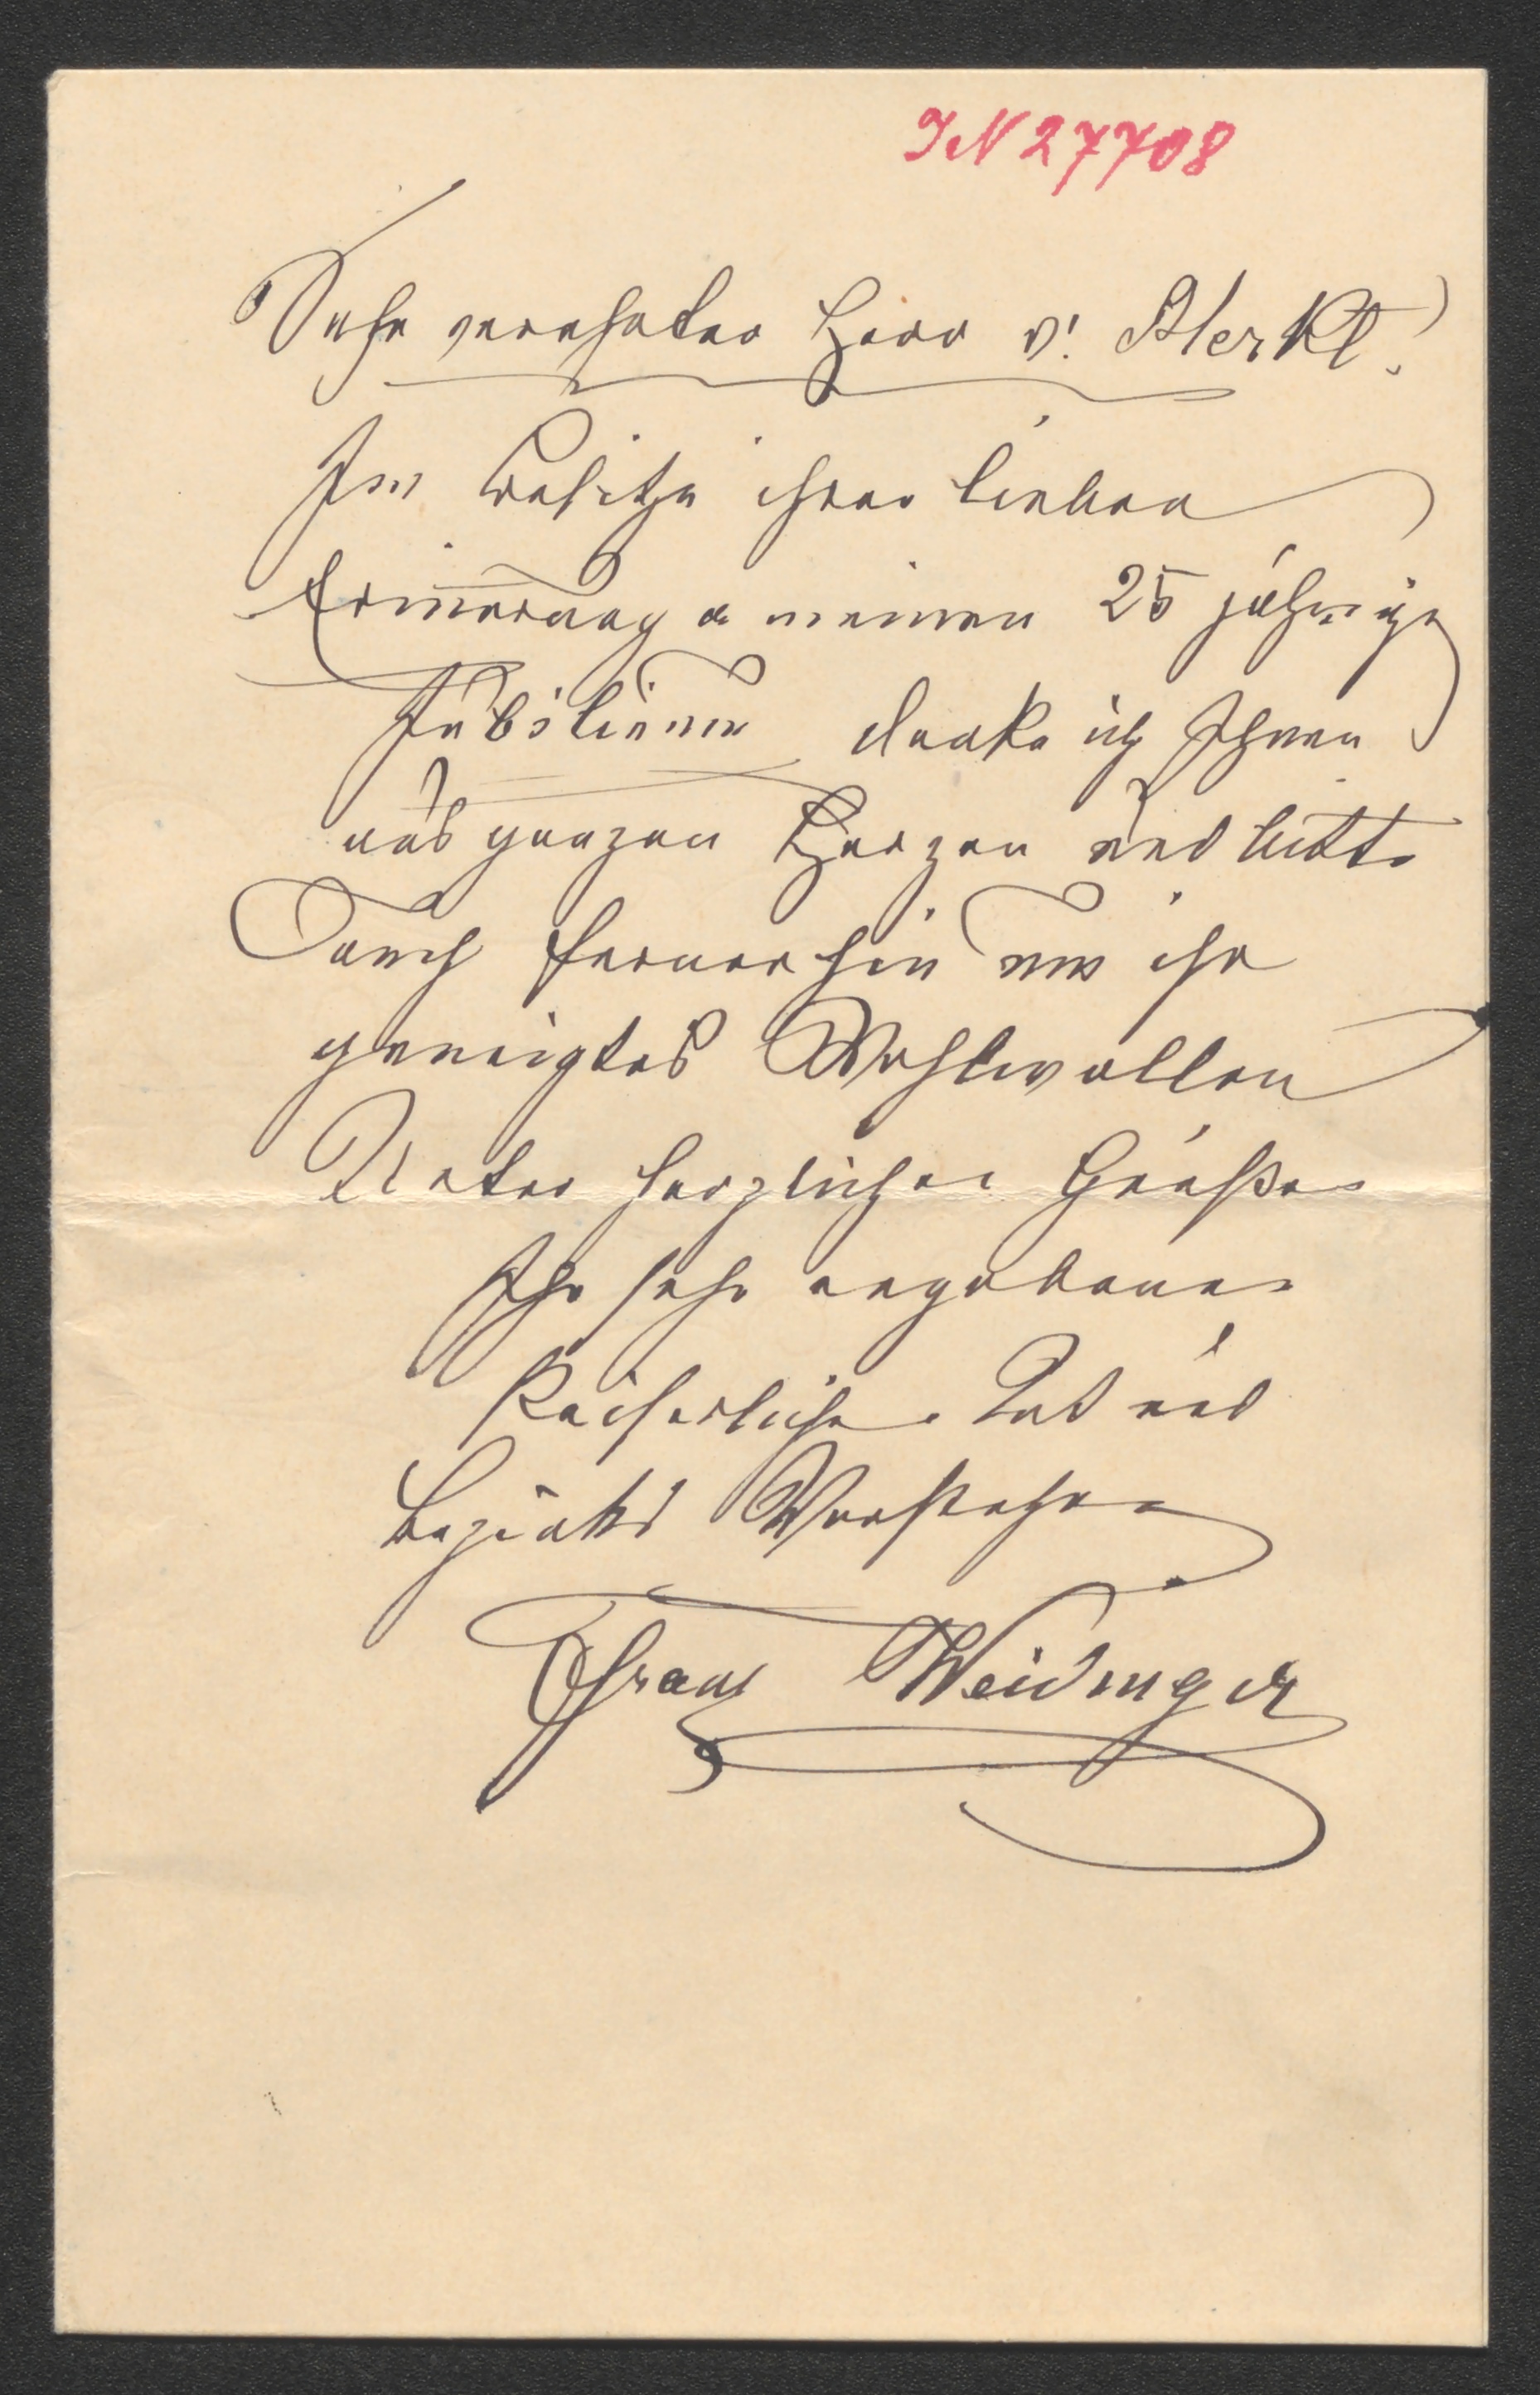 IN 27708
Sehr verehrter Herr v. Merkl!
Im Besitze ihrer lieben
Erinnerung a meinen 25 jährige
Jubiläum danke ich Ihnen
aus ganzen Herzen und bitte
auch fernerhin um ihr
geneigtes Wohlwollen
Unter herzlichen Grüßen
Ihr sehr ergebener
Kaiserlicher Rat und
Bezirks Vorsteher
Franz Weidinger